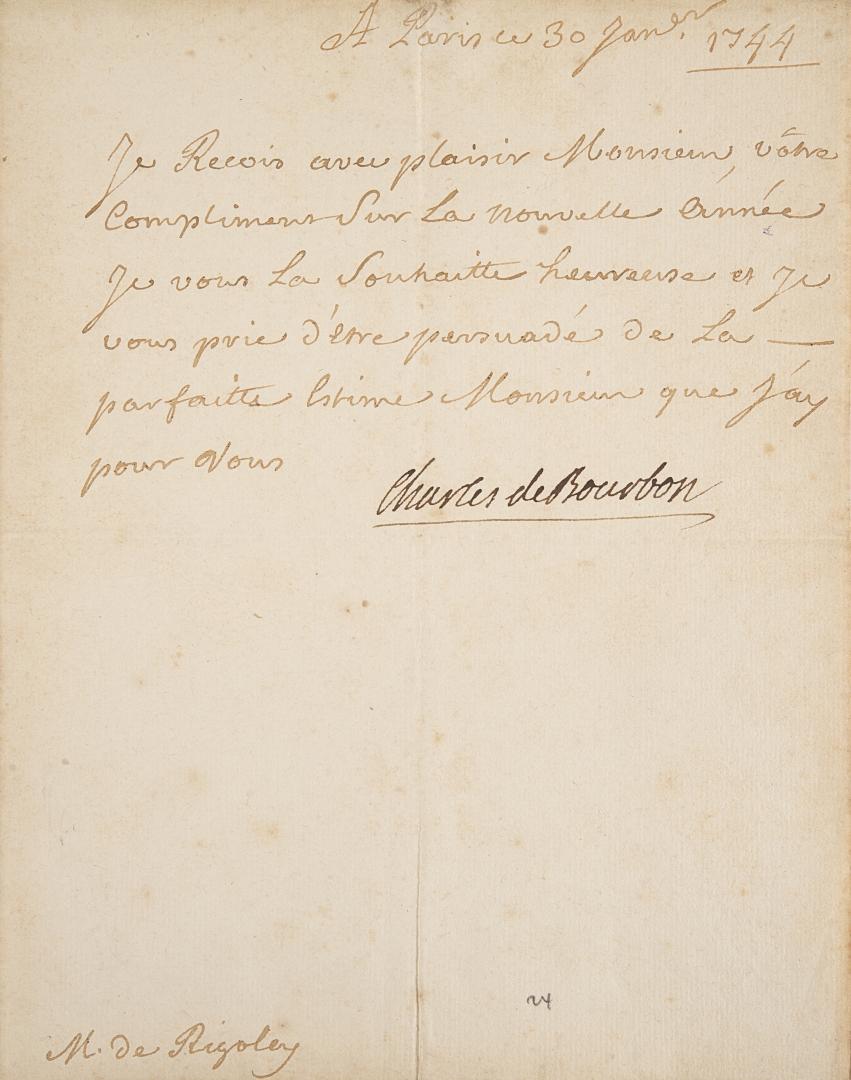 A Paris ce 30 Janer. 1744
Je Recois avec plaisir Monsieur, vôtre
Compliment Sur La nouvelle Année
Je vous La Souhaitte heureuse et Je
vous prie d'être persuadé de La —
parfaitte Estime Monsieur que J'ay
pour Vous
Charles de Bourbon
24
M. de Rigoley